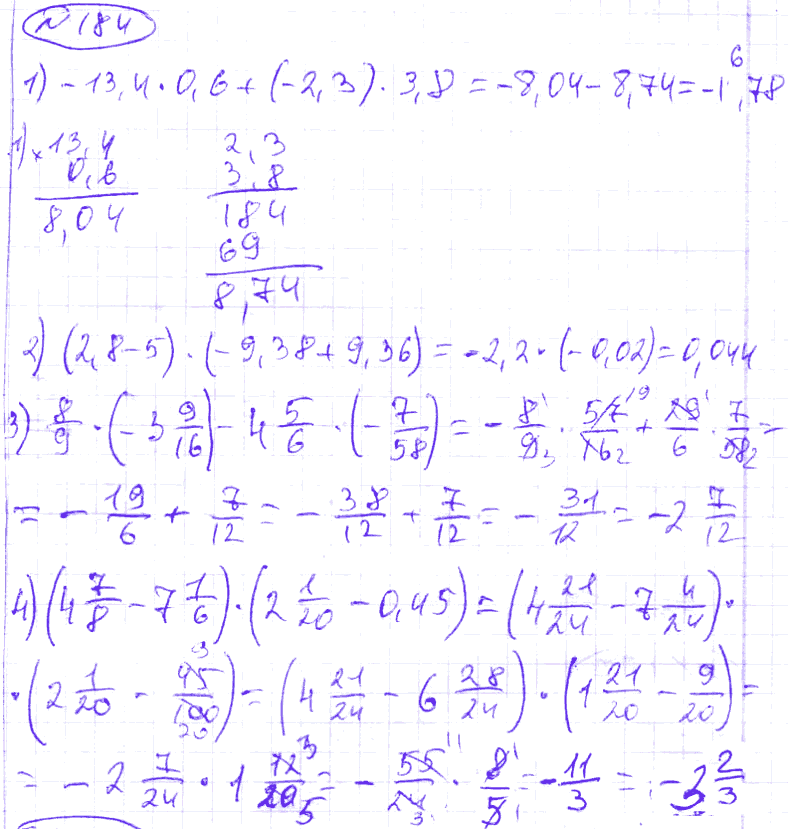 №184
1) -13,4·0,6+(-2,3)·3,8=-8,04-8,74=-16,78
1) ×13,4 2,3
0,6 3,8
8,04 184
69
8,74
2) (2,8-5)·(-9,38+9,36)=-2,2·(-0,02)=0,044
3) 8/9·(-3 9/16)-4 5/6·(-7/58)=-8/9·57/16+29/6·7/58=
=-19/6+7/12=-38/12+7/12=-31/12=-2 7/12
4) (4 7/8-7 1/6)·(2 1/20-0,45)=(4 21/24-7 4/24)·
·(2 1/20-45/100)=(4 21/24-6 28/24)·(1 21/20-9/20)=
=-2 7/24·1 12/20=-55/24·8/5=-11/3=-3 2/3